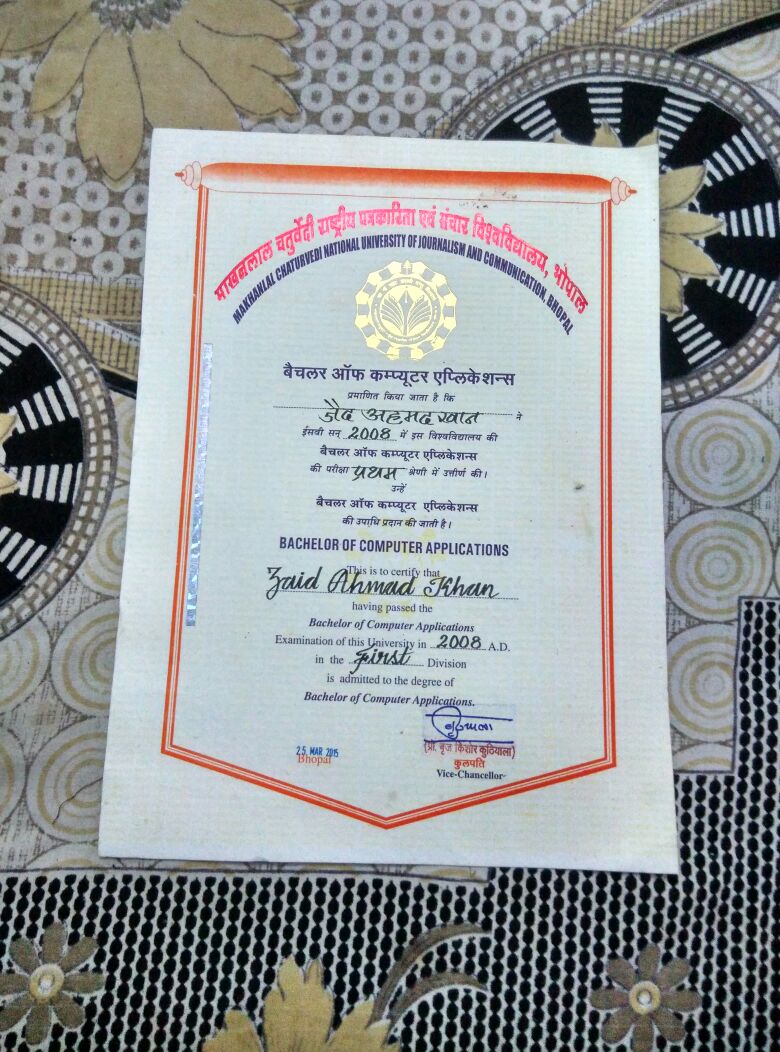 माखनलाल चतुर्वेदी राष्ट्रीय पत्रकारिता एवं संचार विश्वविद्यालय, भोपाल
MAKHANLAL CHATURVEDI NATIONAL UNIVERSITY OF JOURNALISM AND COMMUNICATION, BHOPAL
बैचलर ऑफ कम्प्यूटर एप्लिकेशन्स
प्रमाणित किया जाता है कि
जैद अहमद खान ने
ईसवी सन् 2008 में इस विश्वविद्यालय की
बैचलर ऑफ कम्प्यूटर एप्लिकेशन्स
की परीक्षा प्रथम श्रेणी में उत्तीर्ण की।
उन्हें
बैचलर ऑफ कम्प्यूटर एप्लिकेशन्स
की उपाधि प्रदान की जाती है।
BACHELOR OF COMPUTER APPLICATIONS
This is to certify that
Zaid Ahmad Khan
having passed the
Bachelor of Computer Applications
Examination of this University in 2008 A.D.
in the First Division
is admitted to the degree of
Bachelor of Computer Applications.
25 MAR 2015
Bhopal
(प्रो. बृज किशोर कुठियाला)
कुलपति
Vice-Chancellor